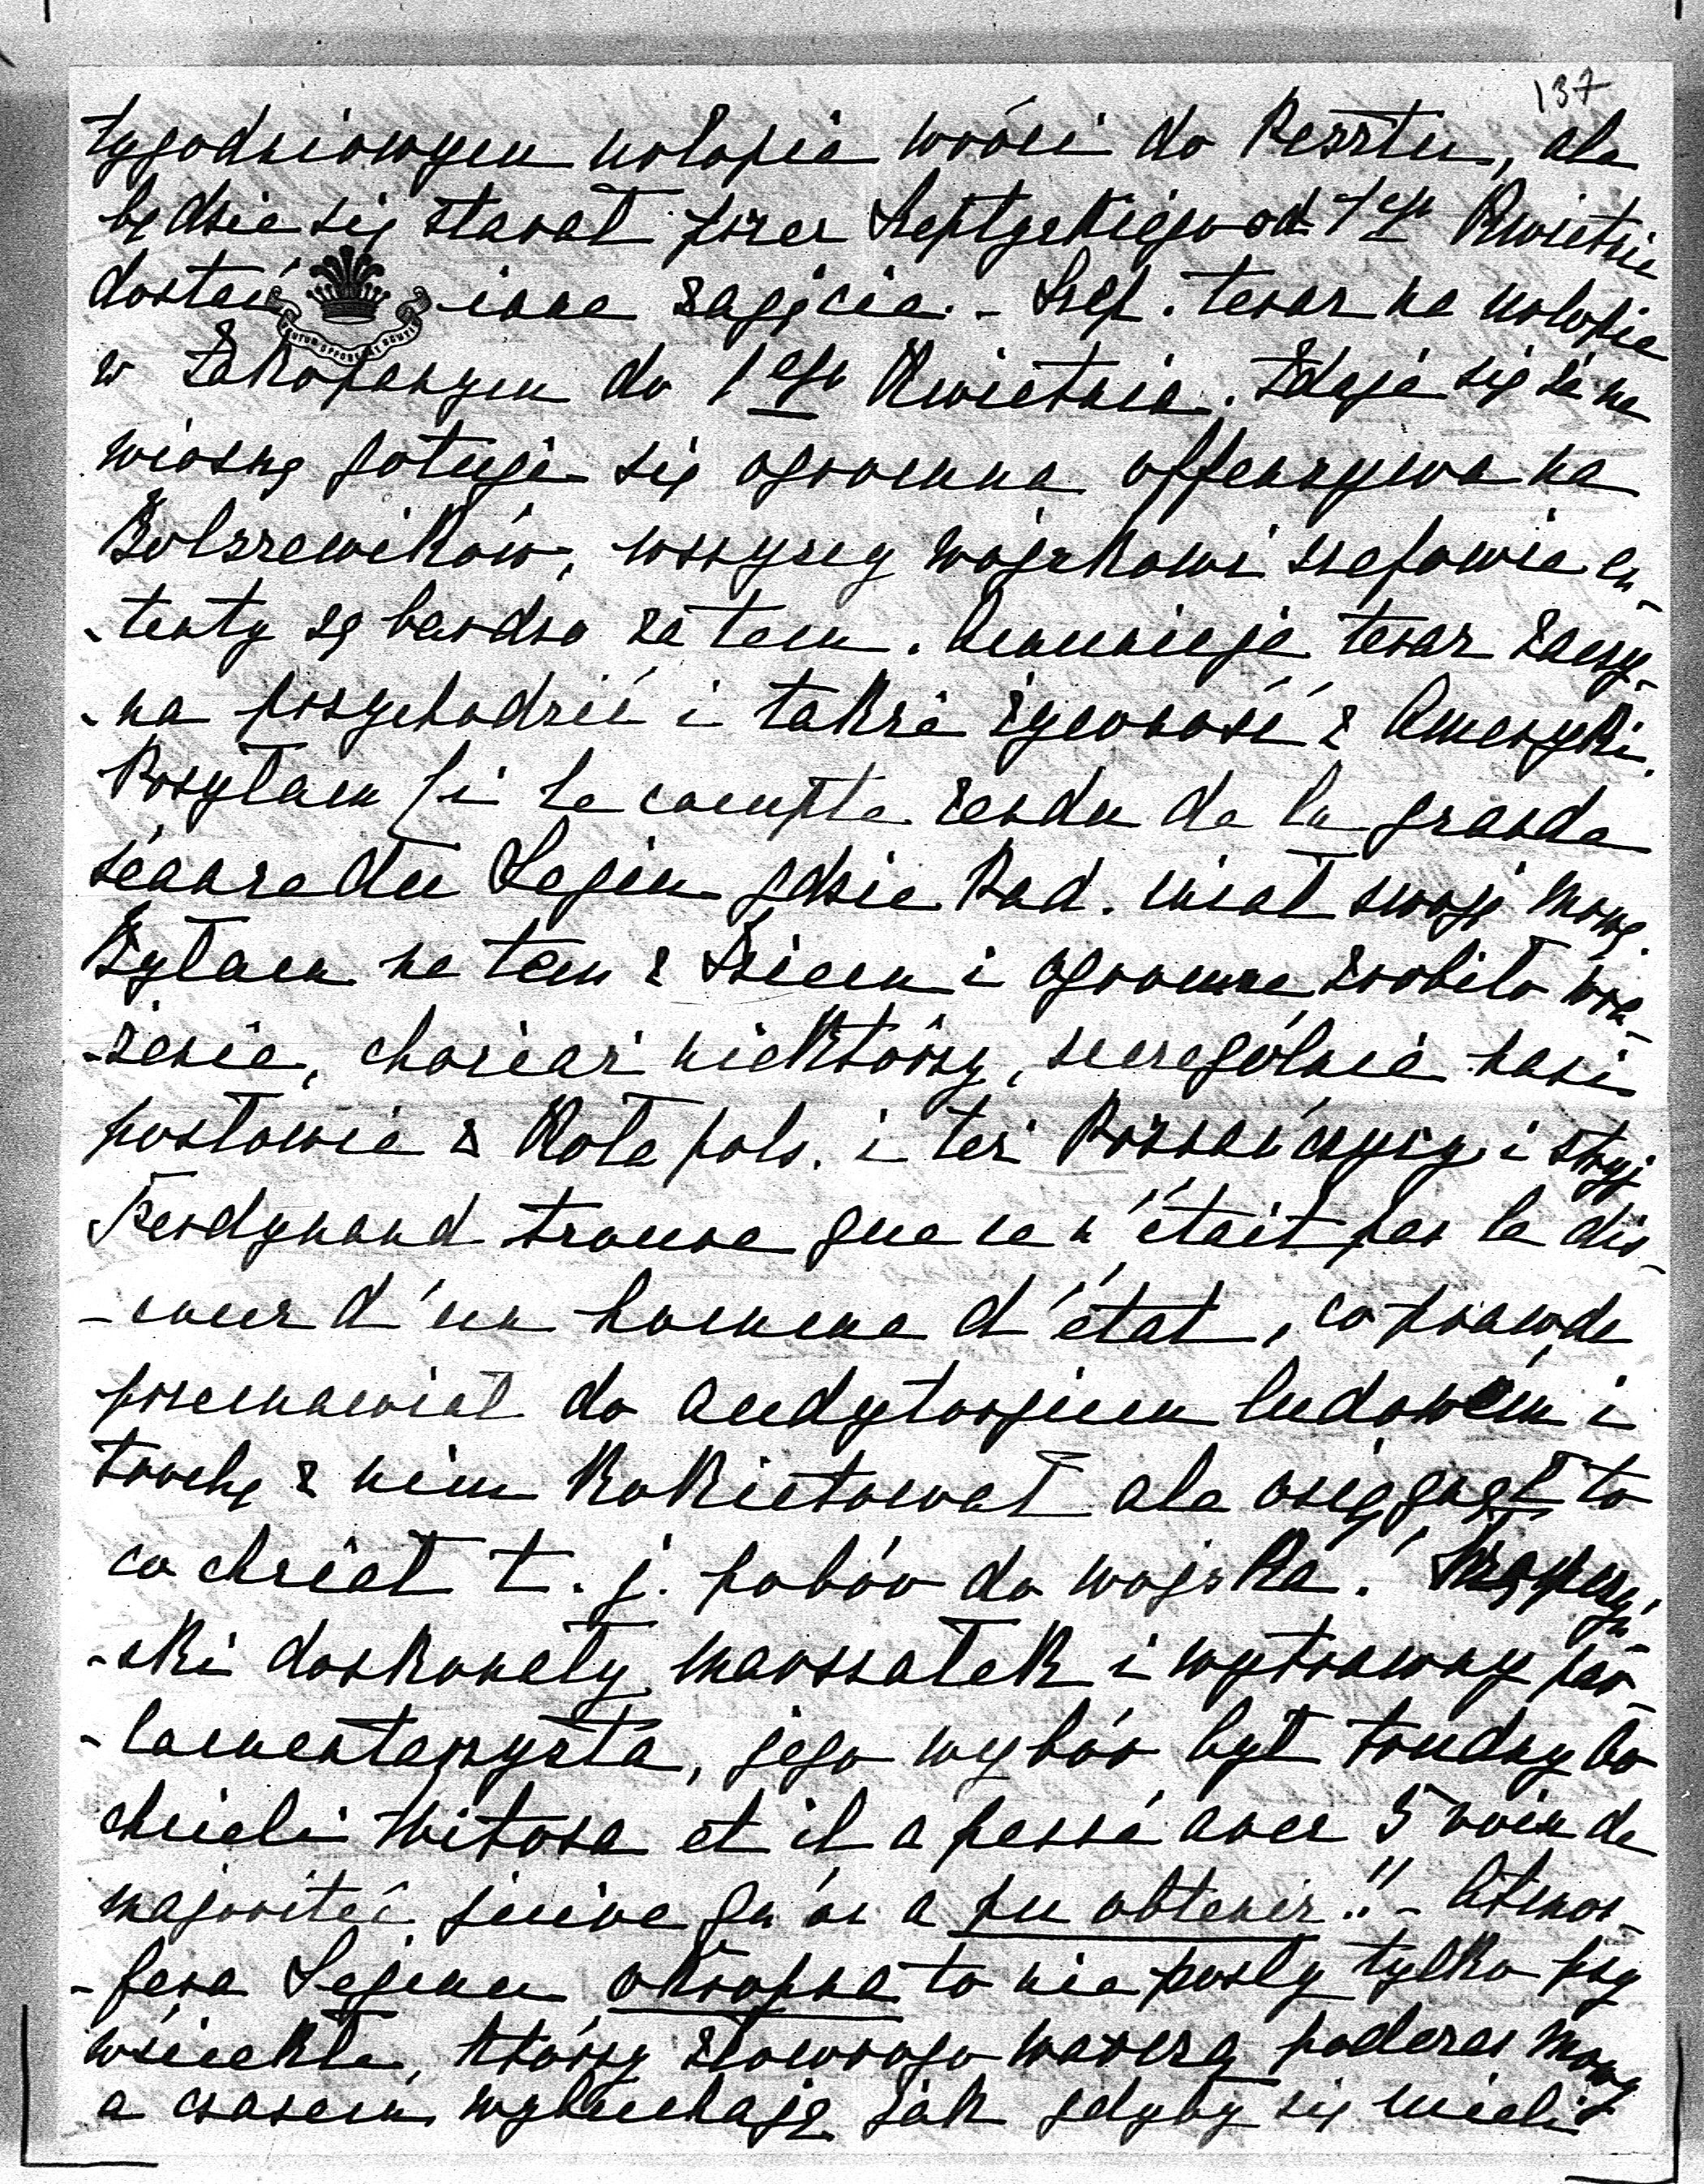 137
tygodniowym urlopie wróci do Pesztu, ale
będzie się starał przez Szeptyckiego od 1ego Kwietnia
dostać inne zajęcie. - Szep. teraz na urlopie
w Zakopanym do 1ego Kwietnia. Zdaje się że na
wiosnę gotuje się ogromna offenzywa na
Bolszewików, wszyscy wojskowi szefowie en-
-tenty są bardzo za tem. Amunicja teraz zaczy-
-na przychodzić i także żywność z Ameryki.
Posyłam Ci le compte rendu de la grande
séance du Sejm gdzie Pad. miał swoję mowę.
Byłam na tem z Dziem i ogromne zrobiło wra-
-żenie, chociaż niektórzy, szczególnie nasi
posłowie z Koła pols. i też Poznańczycy i stryj
Ferdynand trouve que ce n'était pas le dis-
-cour d'un homme d'état, co prawda
przemawiał do audytorjum ludowém i
trochę z nim kokietował ale osięgnął to
co chciał t. j. pobór do wojska! Trąmpczyń-
-ski doskonały marszałek i wytrawny par-
-lamentarzysta, jego wybór był trudny bo
chcieli Witosa et il a passé avec 5 voix de
majorité juive qu'on a pu obtenir!! - Atmos-
-fera Sejmu okropna to nie posły tylko psy
wściekłe, którzy złowrogo warczą podczas mowy
a czasem wybuchają jak gdyby się mieli